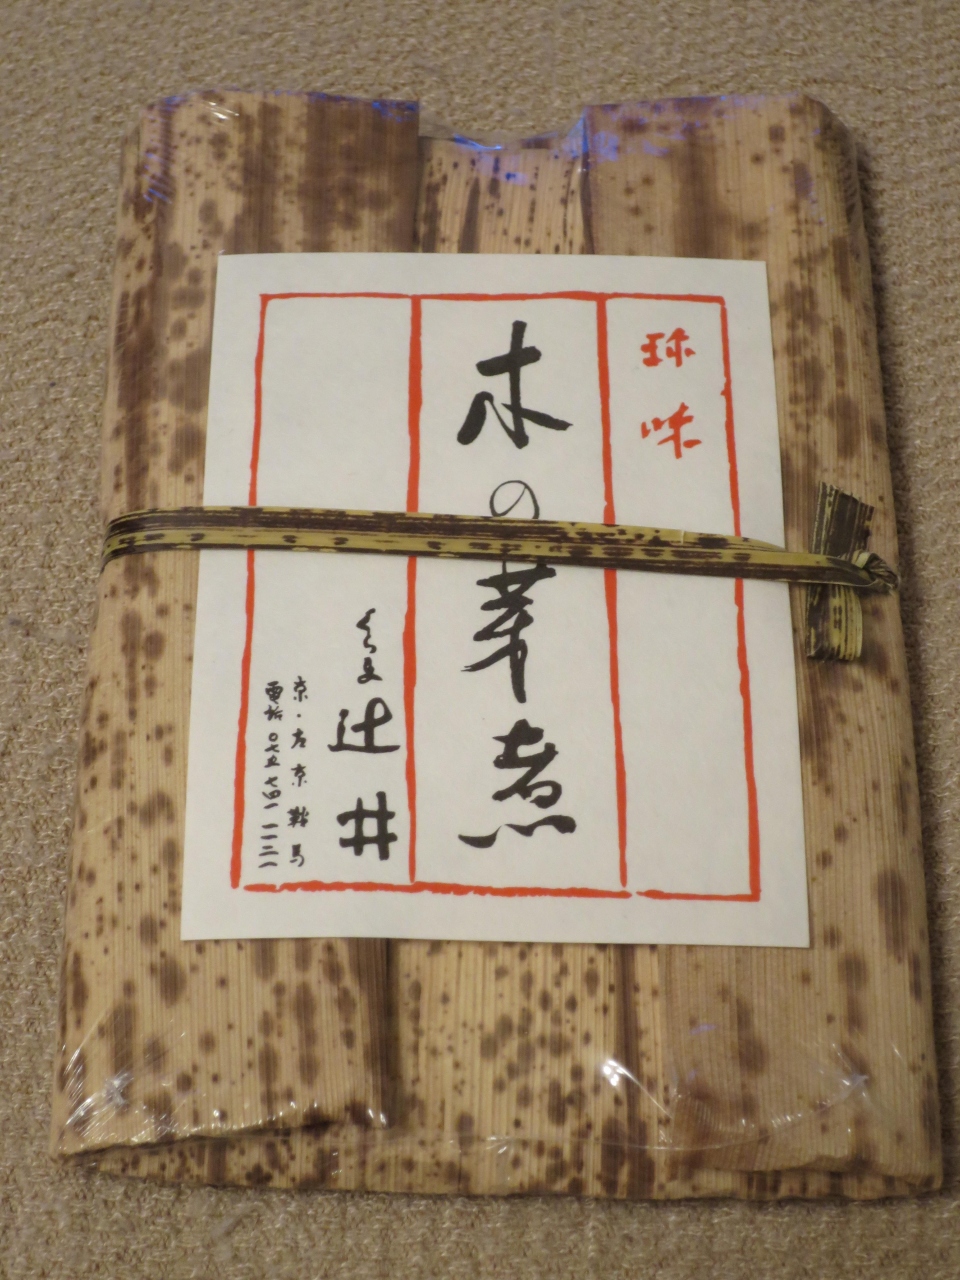 珍味
木の芽煮
くらま辻井
京・左京鞍馬
電話〇七五七四一一一二一